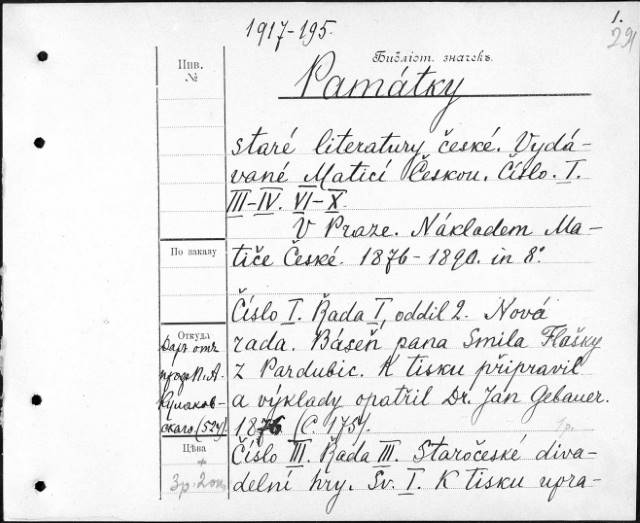 1.
291
1917-195.
Библіот. значекъ.
Инв.
№
Památky
staré literatury české. Vydá-
vané Maticí Českou. Číslo. I.
III-IV. VI-X.
V Praze. Nákladem Ma-
tiče České. 1876-1890. in 8°.
По заказу
Číslo I. Řada I, oddil 2. Nová
rada. Báseň pana Smila Flašky
z Pardubic. K tisku připravil
a výklady opatřil Dr. Jan Gebauer.
1876. (С. 175).
1р.
Číslo III. Řada III. Staročeské diva-
delní hry. Sv. I. K tisku upra-
Откуда
Даръ отъ
проф. П. А.
Кулаков-
скаго. (524).
Цѣна
3р. 20к.